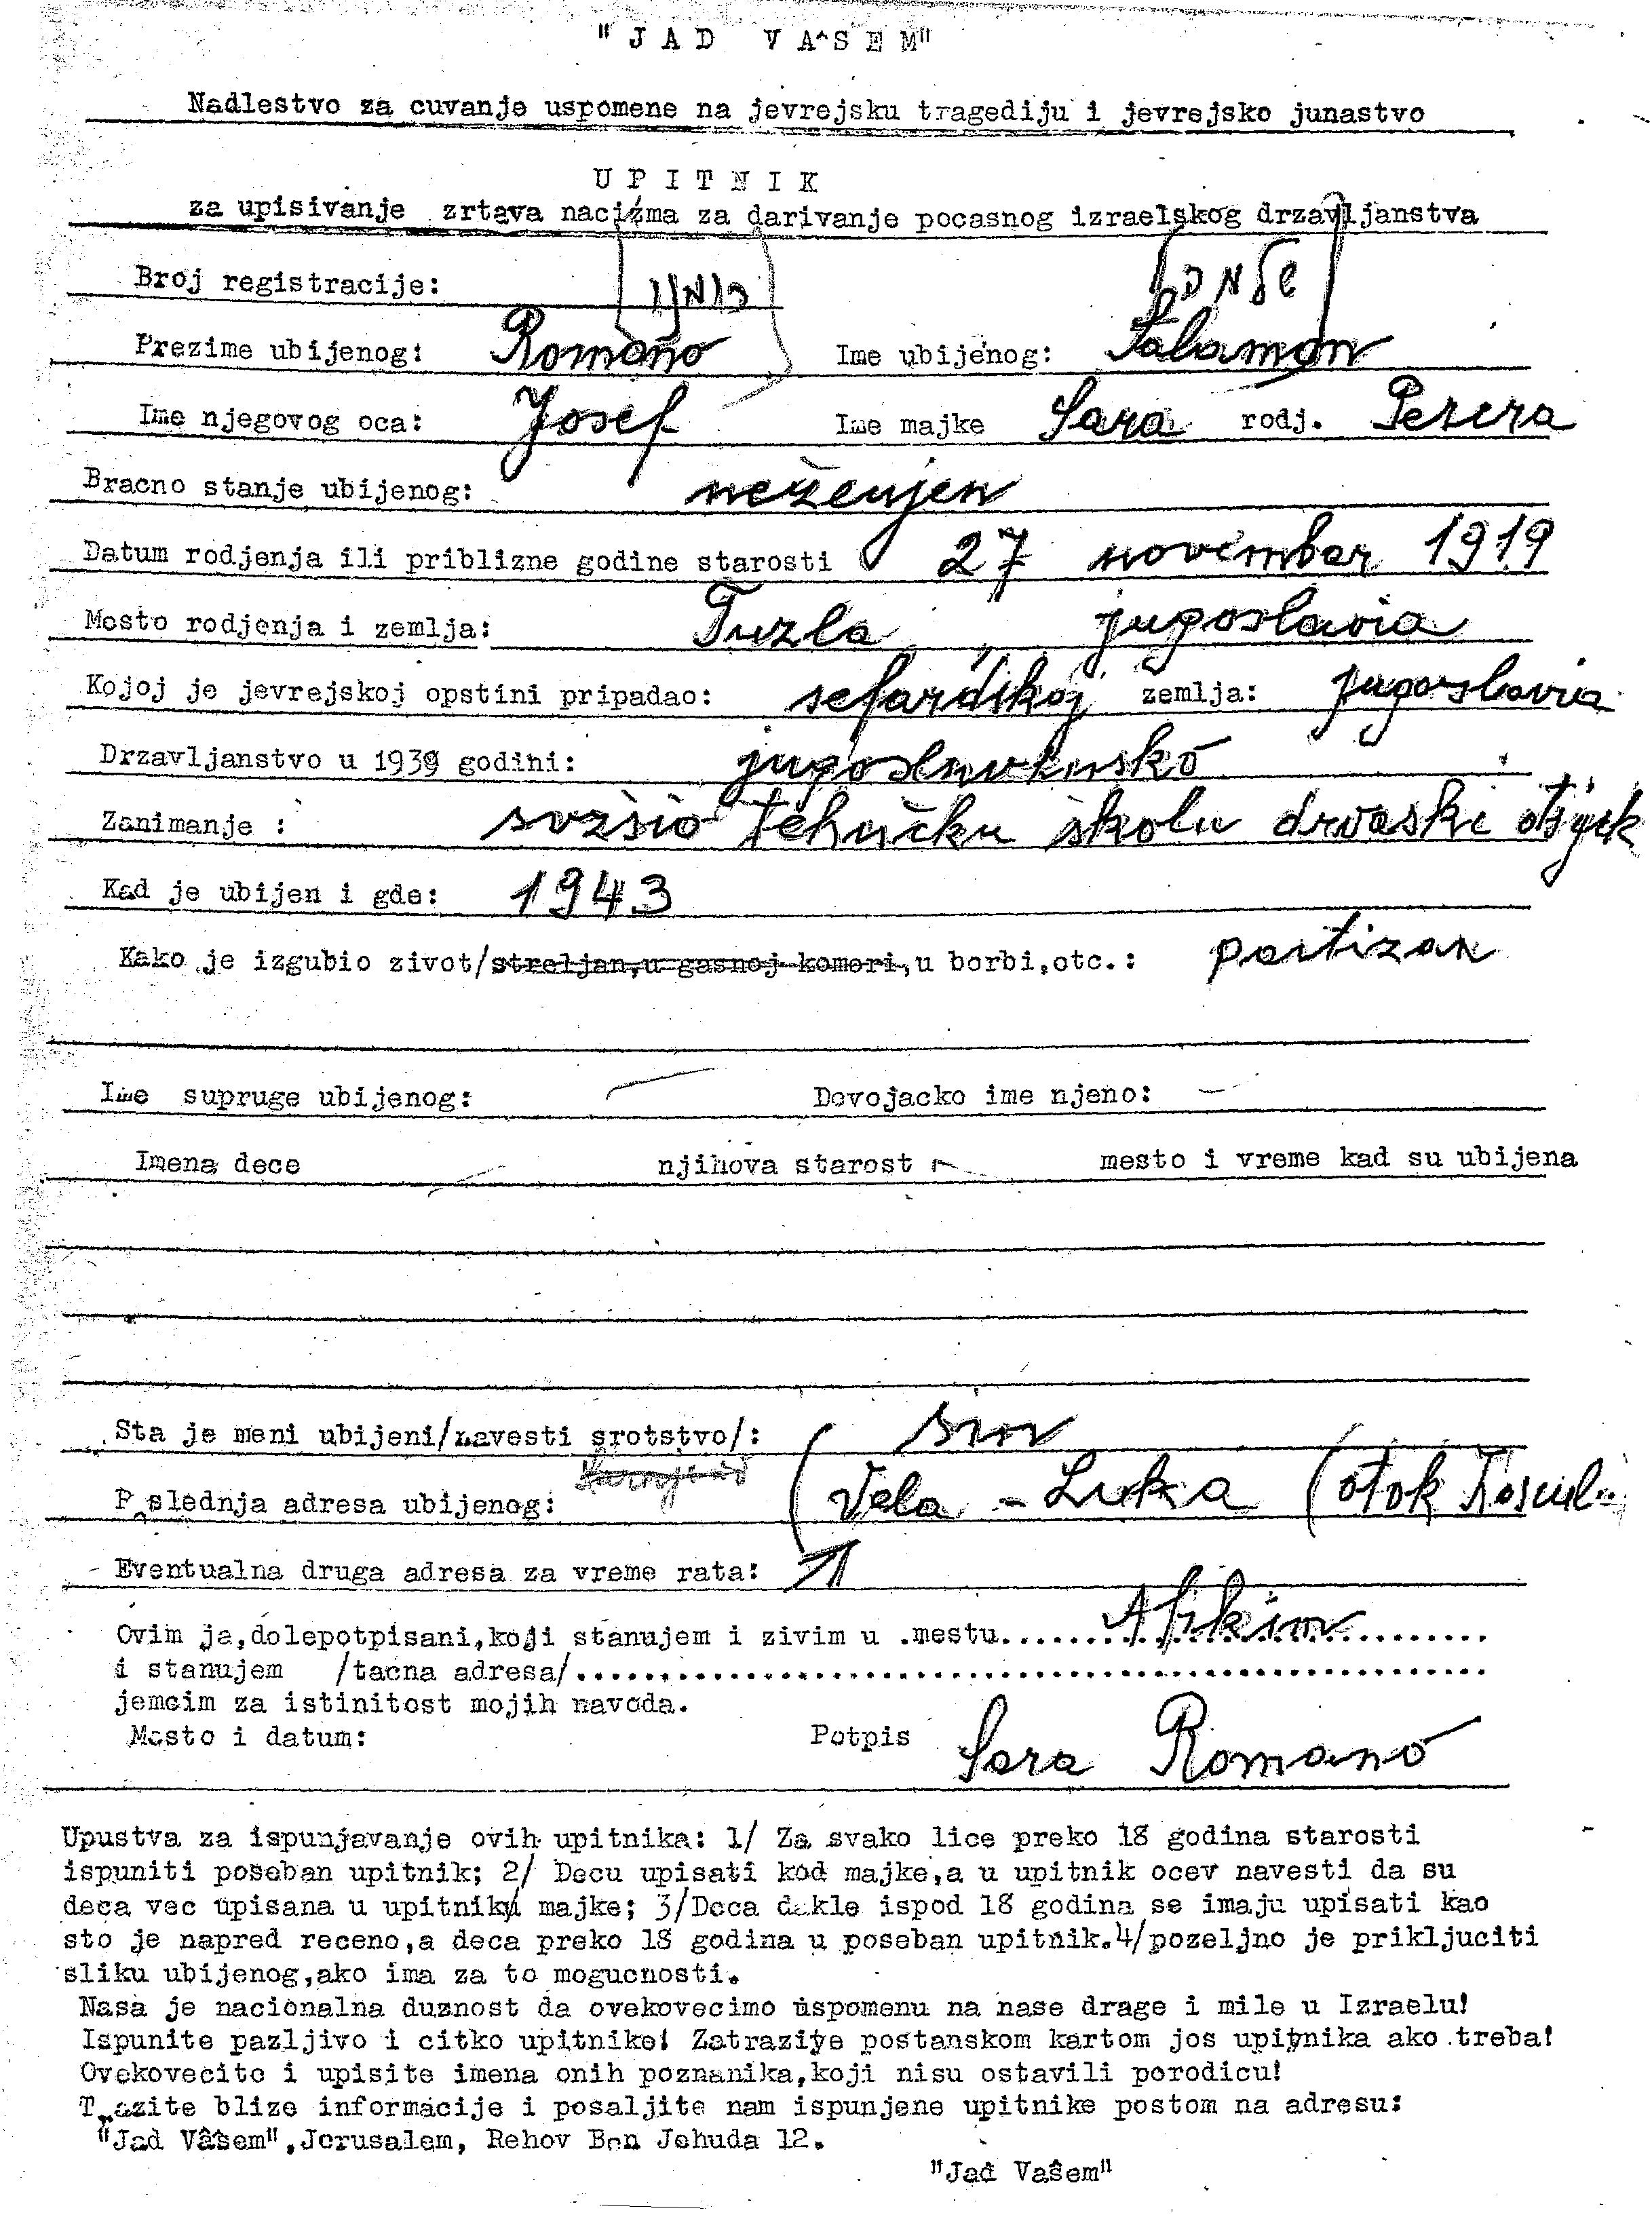 "JAD VAŜEM"
Nadlestvo za cuvanje uspomene na jevrejsku tragediju i jevrejsko junastvo
UPITNIK
za upisivanje zrtava nacizma za darivanje pocasnog izraelskog drzavljanstva
Broj registracije:
Prezime ubijenog: Romano Ime ubijenog: Salamon
Ime njegovog oca: Josef Ime majke Sara rodj. Perera
Bracno stanje ubijenog: neženjen
Datum rodjenja ili priblizne godine starosti 27 novembar 1919
Mesto rodjenja i zemlja: Tuzla, jugoslavia
Kojoj je jevrejskoj opstini pripadao: sefardskoj zemlja: jugoslavia
Drzavljanstvo u 1939 godini: jugoslavensko
Zanimanje : svršio tehničku školu drvaski otsjek
Kad je ubijen i gde: 1943
Kako je izgubio zivot/streljan,u gasnoj komori,u borbi,etc.: partizan
Ime supruge ubijenog: — Devojacko ime njeno: —
Imena dece — njihova starost — mesto i vreme kad su ubijena
Sta je meni ubijeni/navesti srotstvo/: sin
P slednja adresa ubijenog: (Vela - Luka (otok
Eventualna druga adresa za vreme rata:
Ovim ja,dolepotpisani,koji stanujem i zivim u mestu.......Afikim..........
i stanujem /tacna adresa/..........................................
jemcim za istinitost mojih navoda.
Mesto i datum: Potpis Sara Romano
Upustva za ispunjavanje ovih upitnika: 1/ Za svako lice preko 18 godina starosti
ispuniti poseban upitnik; 2/ Decu upisati kod majke,a u upitnik ocev navesti da su
deca vec upisana u upitniku majke; 3/Deca dakle ispod 18 godina se imaju upisati kao
sto je napred receno,a deca preko 18 godina u poseban upitnik.4/pozeljno je prikljuciti
sliku ubijenog,ako ima za to mogucnosti.
Nasa je nacionalna duznost da ovekovecimo uspomenu na nase drage i mile u Izraelu!
Ispunite pazljivo i citko upitnike! Zatrazite postanskom kartom jos upitnika ako treba!
Ovekovecite i upisite imena onih poznanika,koji nisu ostavili porodicu!
Trazite blize informacije i posaljite nam ispunjene upitnike postom na adresu:
"Jad Vašem",Jerusalem, Rehov Ben Jehuda 12.
"Jad Vašem"